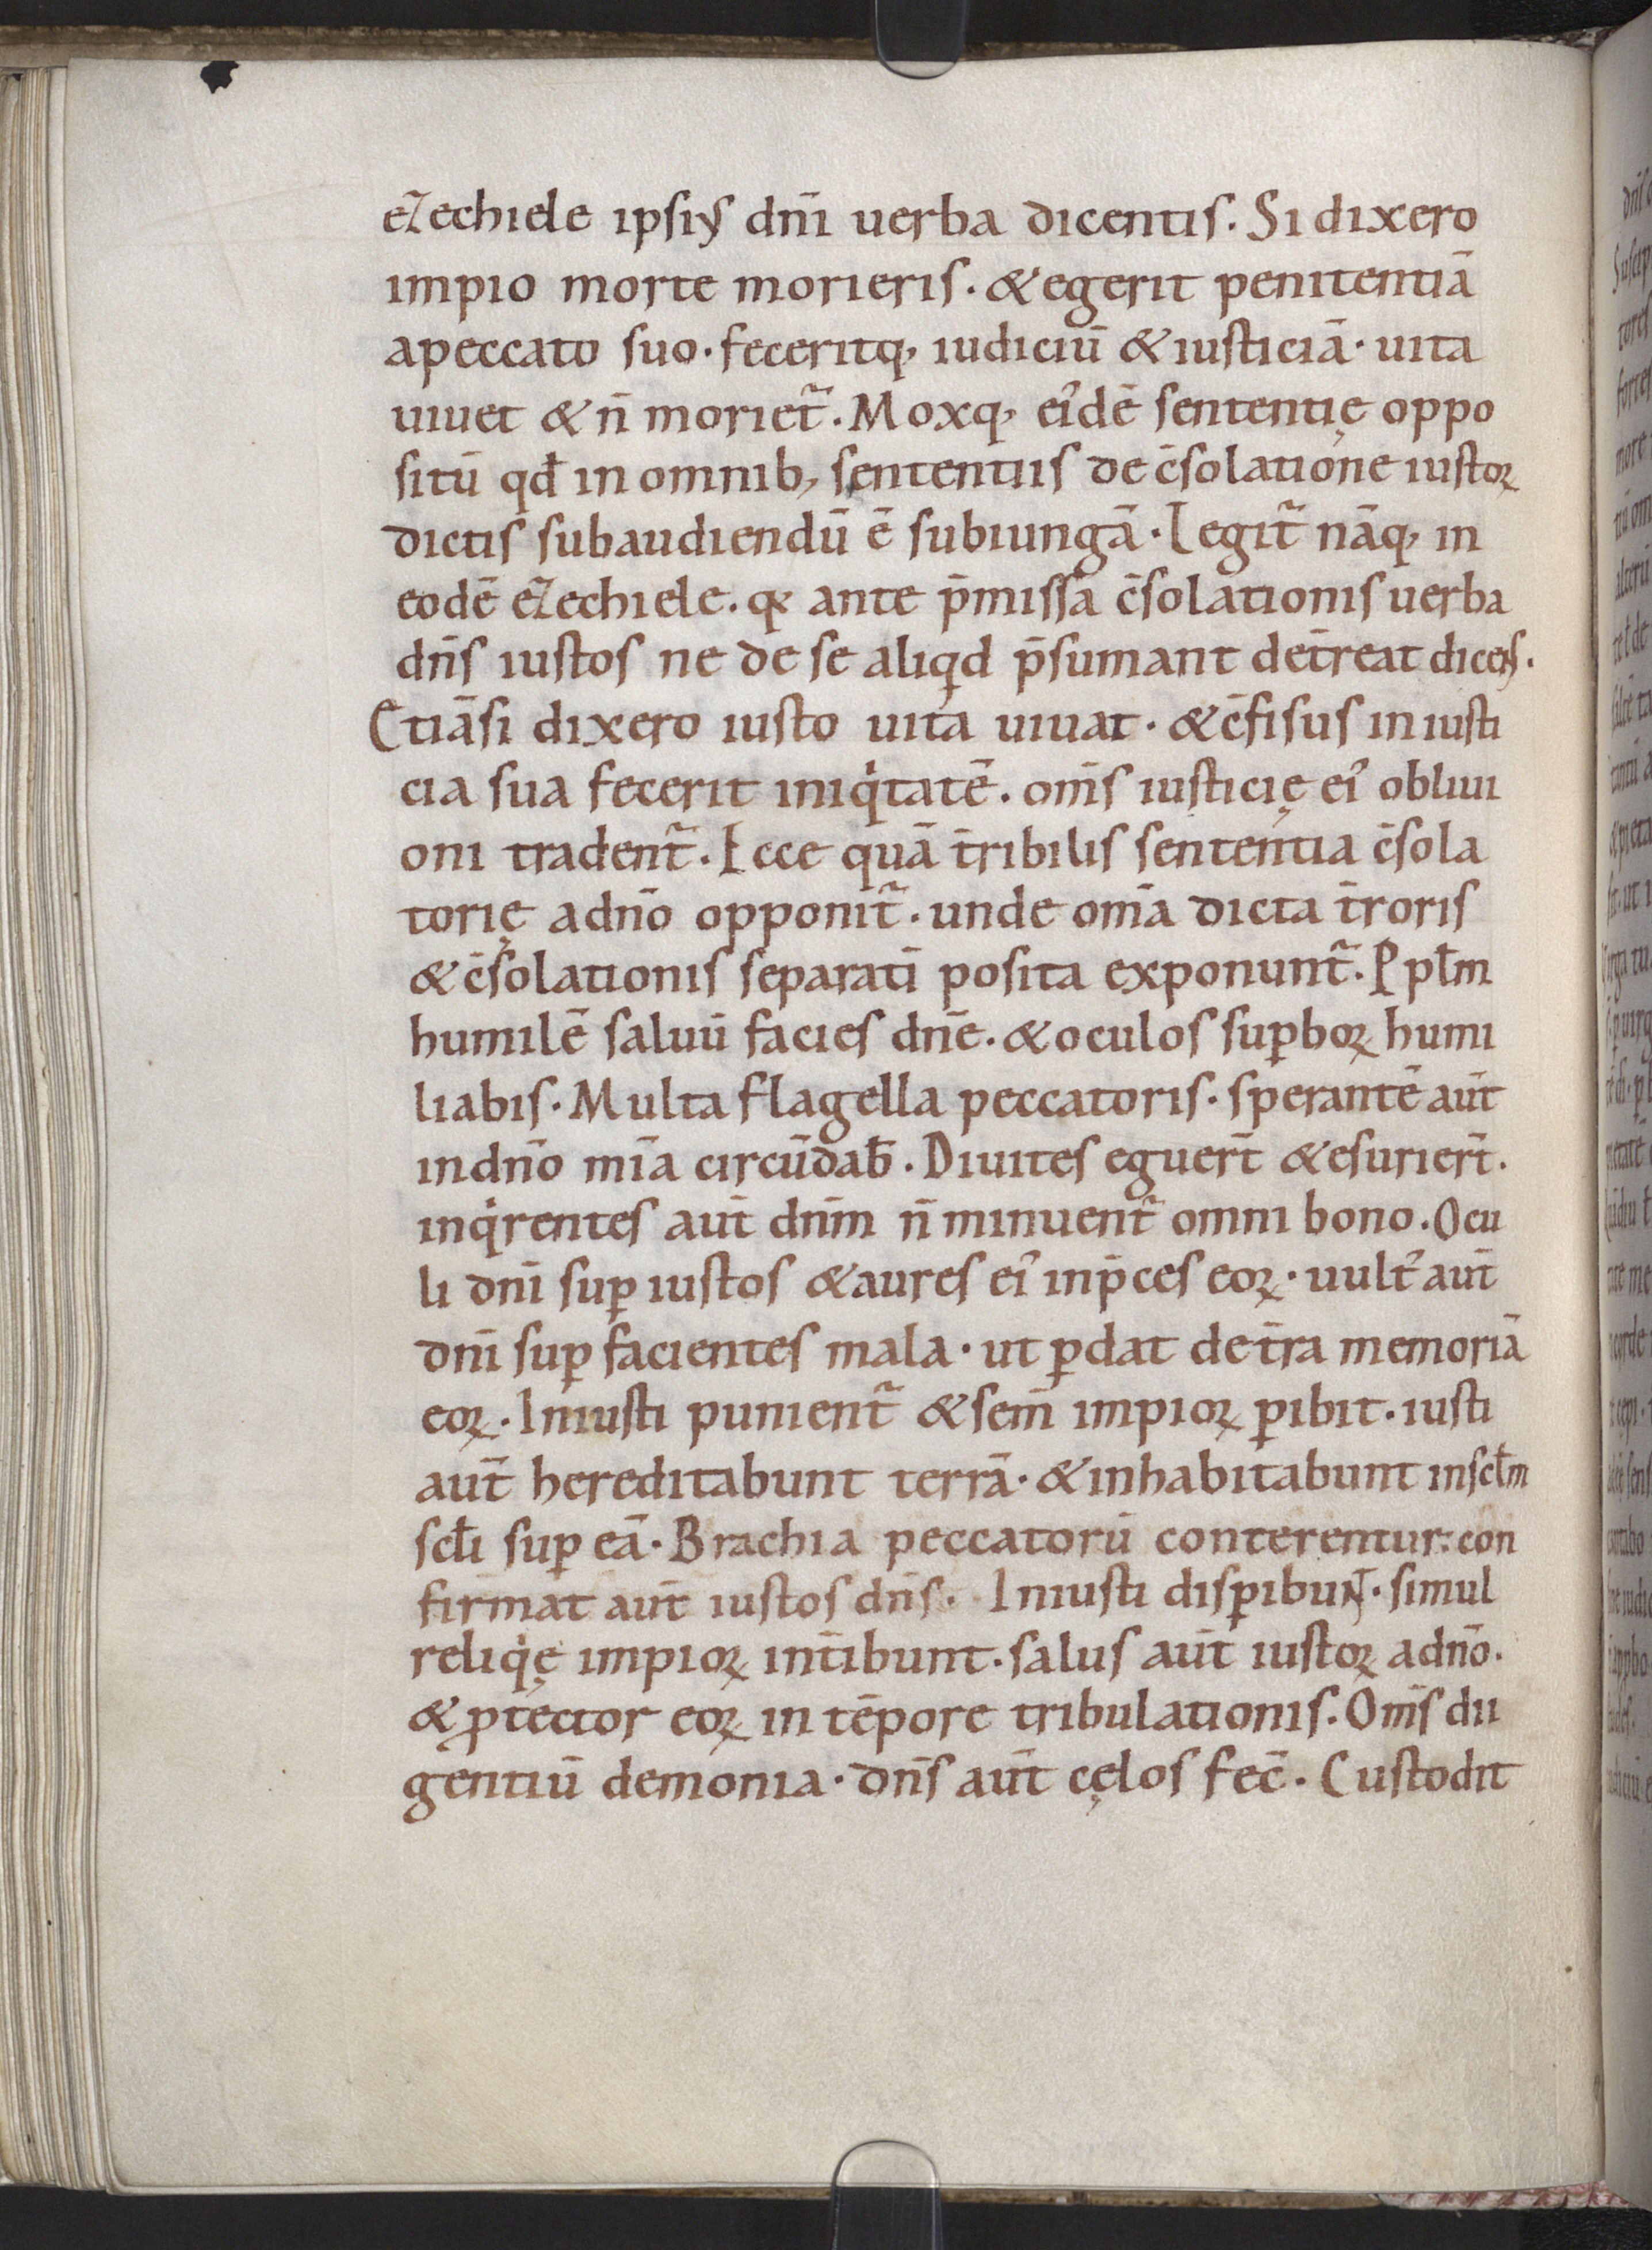 eZechiele ipsius dn̄i uerba dicentis. Si dixero
impio morte morieris. & egerit penitentiā
a peccato suo. feceritq; iudiciū & iusticiā. uita
uiuet & n̄ moriet᷑. Moxq; ei᷒dē sententię oppo
sitū qđ in omnib; sententiis de c̄solatione iustoꝝ
dictis subaudiendū ē subiungā. Legit᷑ nāq; in
eodē eZechiele. qꝛ ante p̄missa c̄solationis uerba
dn̄s iustos ne de se aliqd p̄sumant det̄reat dicens.
Etiāsi dixero iusto uita uiuat. & c̄fisus in iusti
cia sua fecerit iniqͥtatē. om̄s iusticię ei᷒ obliui
oni tradent᷑. Ecce quā t̄ribilis sententia c̄sola
torię ad n̄o opponit᷑. unde om̄a dicta t̄roris
& c̄solationis separati posita exponunt᷑. P pl̄m
humilē saluū facies dn̄e. & oculos suꝑboꝝ humi
liabis. Multa flagella peccatoris. sperantē aūt
in dn̄o mīa circūdab̄. Diuites eguer̄t & esurier̄t.
inqͥrentes aūt dn̄m n̄ minuent᷑ omni bono. Ocu
li dn̄i suꝑ iustos & aures ei᷒ in p̄ces eoꝝ. uult᷒ aūt
dn̄i suꝑ facientes mala. ut ꝑdat de t̄ra memoriā
eoꝝ. Iniusti punient᷑ & sem̄ impioꝝ ꝑibit. iusti
aūt hereditabunt terrā. & inhabitabunt in scl̄m
scl̄i suꝑ eā. Brachia peccatorū conterentur: con
firmat aūt iustos dn̄s. Iniusti disꝑibunt. simul
reliqͥę impioꝝ int̄ibunt. salus aūt iustoꝝ a dn̄o.
& ꝓtector eoꝝ in tēpore tribulationis. Om̄s dii
gentiū demonia. dn̄s aūt cęlos fec̄. Custodit